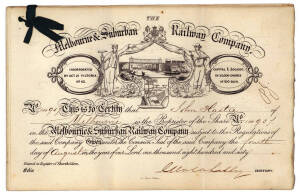 THE
Melbourne & Suburban Railway Company
INCORPORATED
BY ACT 21 VICTORIA
CAPITAL £
SHARES
This is to Certify that John Hastie
of Melbourne is the Proprietor of the Share No. 90
in the Melbourne & Suburban Railway Company subject to the Regulations of
the said Company Given under the Common Seal of the said Company the fourth
day of August in the year of our Lord one thousand eight hundred and sixty
Entered in Register of Shareholders
Folio
SECRETARY.